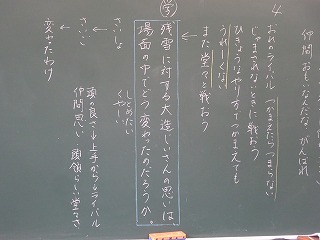 仲間おもいなんだな、がんばれ
4
おれのライバル つかまえたらつまらない
じゃまされないときに戦おう
ひきょうなやり方でつかまえても
うれしくない
また堂々と戦おう
⑤
残雪に対する大造じいさんの思いは、
場面の中でどう変わったのだろうか。
しとめたい
くやしい
さいしょ
↓
さいご
↓
変わったわけ
頭の良さ 上手がら ライバル
仲間思い 頭領らしい堂々さ